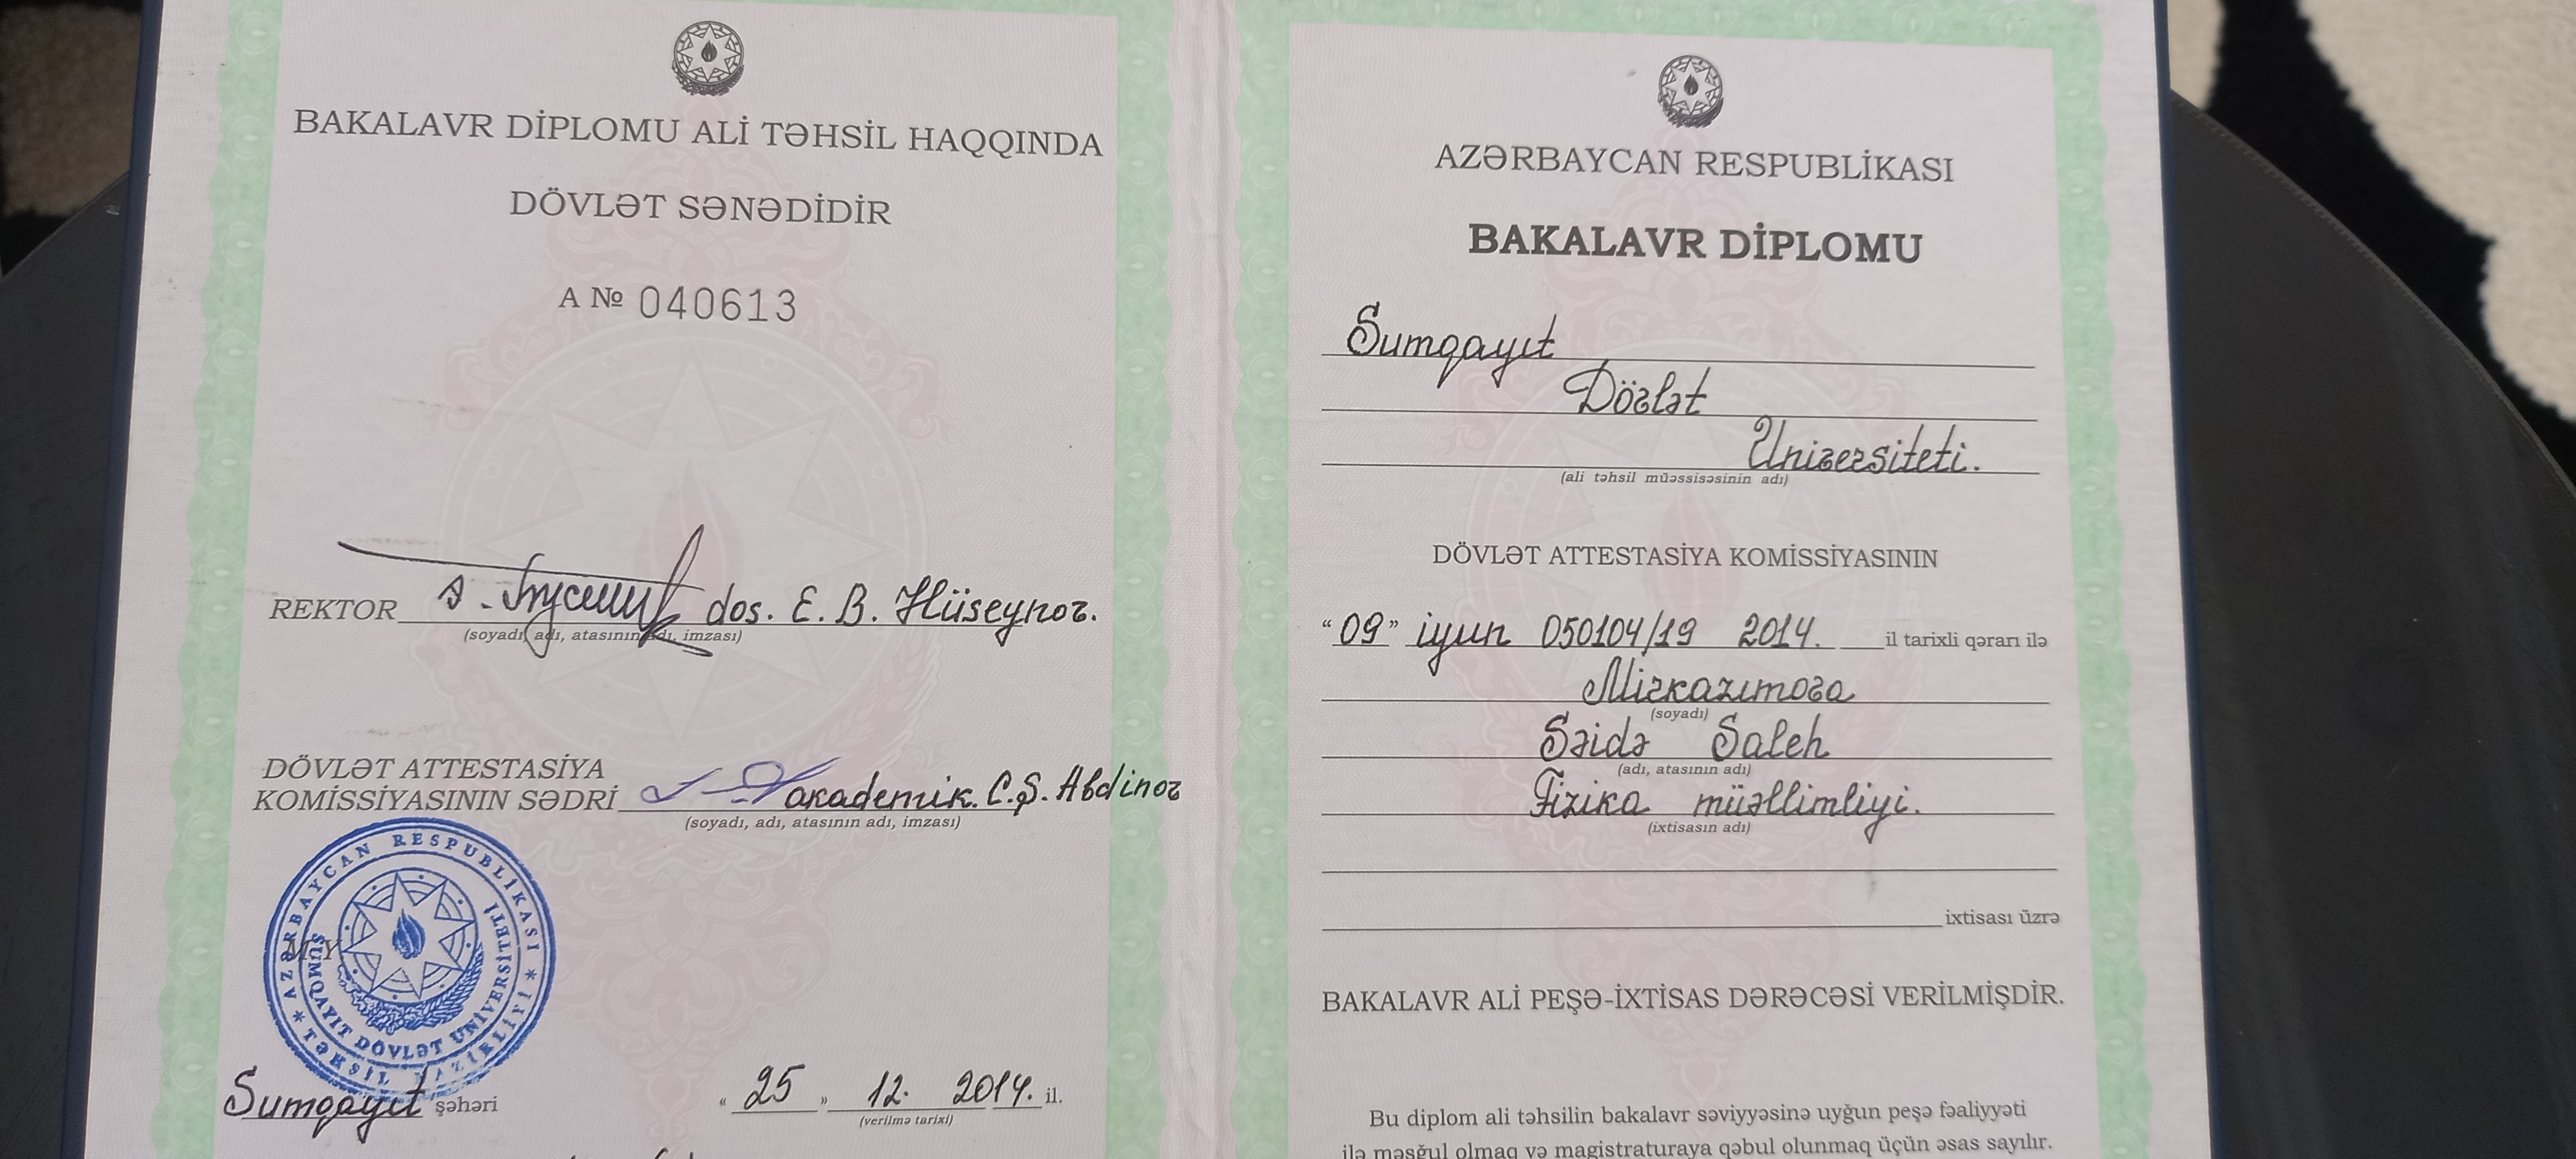 BAKALAVR DİPLOMU ALİ TƏHSİL HAQQINDA
DÖVLƏT SƏNƏDİDİR
A № 040613
REKTOR dos. E. B. Hüseynov.
(soyadı, adı, atasının adı, imzası)
DÖVLƏT ATTESTASİYA
KOMİSSİYASININ SƏDRİ akademik. C.Ş. Abdinov
(soyadı, adı, atasının adı, imzası)
M Y
AZƏRBAYCAN RESPUBLİKASI * TƏHSİL NAZİRLİYİ *
SUMQAYIT DÖVLƏT UNİVERSİTETİ
Sumqayıt şəhəri
"25" 12. 2014. il.
(verilmə tarixi)
AZƏRBAYCAN RESPUBLİKASI
BAKALAVR DİPLOMU
Sumqayıt
Dövlət
Universiteti.
(ali təhsil müəssisəsinin adı)
DÖVLƏT ATTESTASİYA KOMİSSİYASININ
"09" iyun 050104/19 2014. il tarixli qərarı ilə
Mirkazımova
(soyadı)
Səidə Saleh
(adı, atasının adı)
Fizika müəllimliyi.
(ixtisasın adı)
ixtisası üzrə
BAKALAVR ALİ PEŞƏ-İXTİSAS DƏRƏCƏSİ VERİLMİŞDİR.
Bu diplom ali təhsilin bakalavr səviyyəsinə uyğun peşə fəaliyyəti
ilə məşğul olmaq və magistraturaya qəbul olunmaq üçün əsas sayılır.